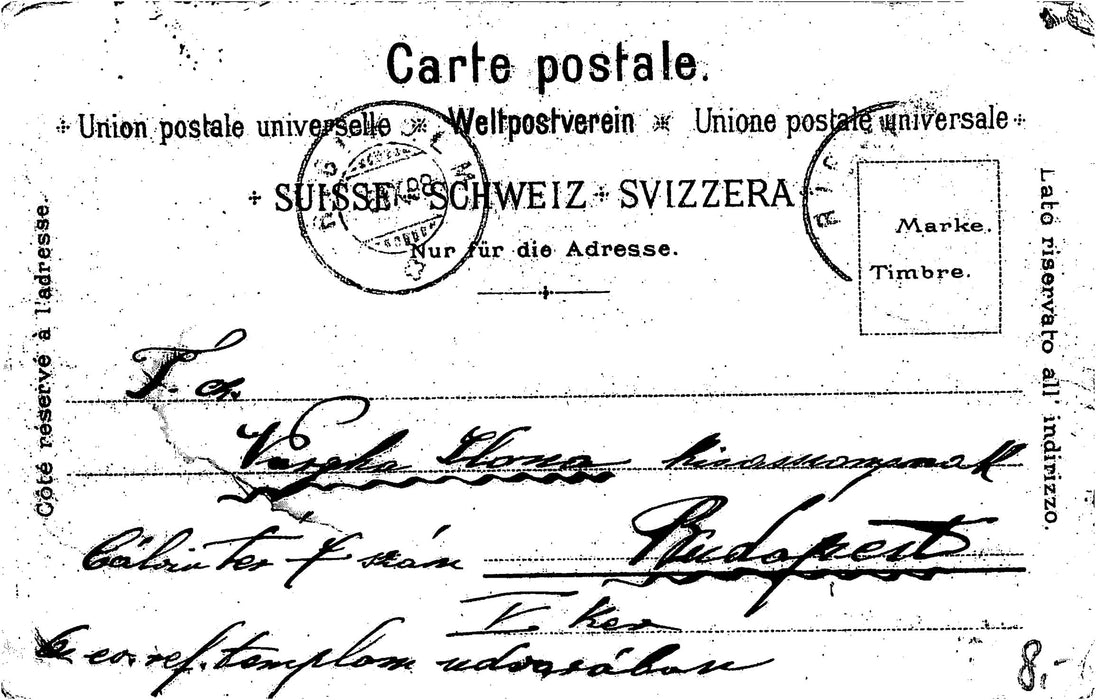 Carte postale.
Union postale universelle Weltpostverein Unione postale universale
SUISSE SCHWEIZ SVIZZERA
Nur für die Adresse.
Côté réservé à l'adresse.
Lato riservato all' indirizzo.
Marke.
Timbre.
RIGI
T. cz.
Vargha Ilona kisasszonynak
Kálvin tér 7 szám Budapest
V. ker
ev. ref. templom udvarában
8,-